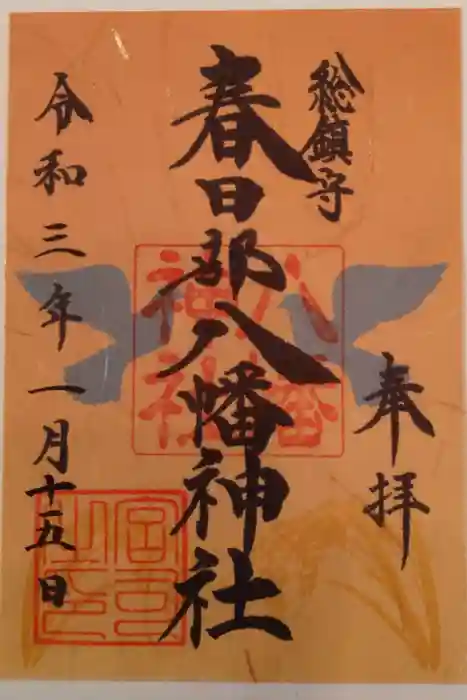 奉拝
総鎮守
春日部八幡神社
令和三年一月十五日
八幡
神社